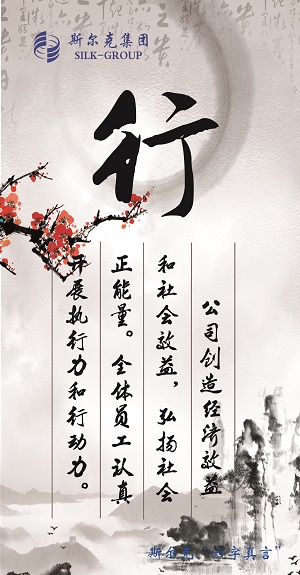 斯尔克集团
SILK-GROUP
行
公司创造经济效益
和社会效益，弘扬社会
正能量。全体员工认真
开展执行力和行动力。
斯尔克“字真言”